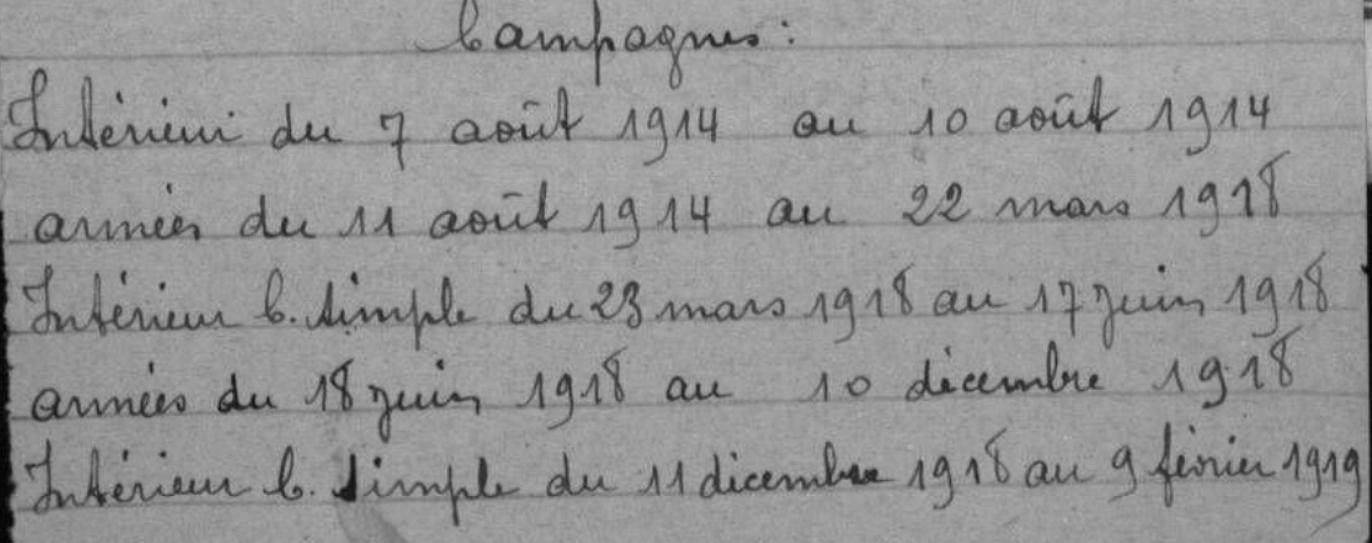 Campagnes:
Intérieur du 7 août 1914 au 10 août 1914
armées du 11 août 1914 au 22 mars 1918
Intérieur C. simple du 23 mars 1918 au 17 juin 1918
armées du 18 juin 1918 au 10 décembre 1918
Intérieur C. simple du 11 décembre 1918 au 9 février 1919